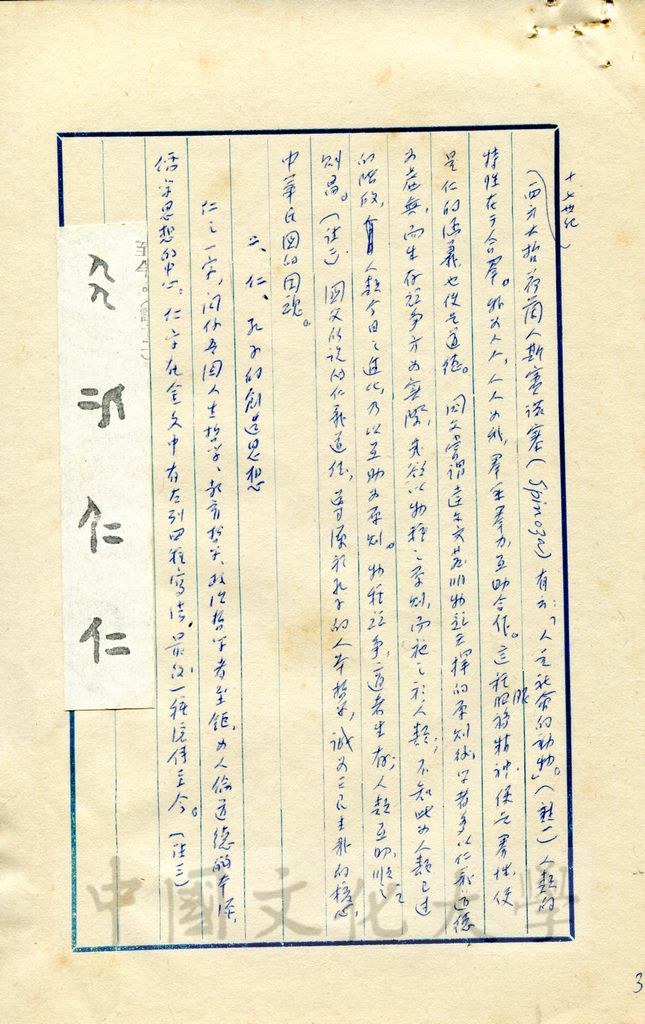 十七世紀
(西方大哲荷蘭人斯賓諾塞(Spinoza)有云:「人是社會的動物。」(註一)人類的
特性在于合羣。我為人人,人人為我,羣策羣力,互助合作。這種服務精神便是羣性,便
是仁的涵義,也便是道德。國父嘗謂達爾文發明物競天擇的原則後,學者多以仁義道德
為虛無,而生存競爭方為實際,或欲以物種之原則,而施之於人類;不知此為人類已過
的階段,人類今日之進化,乃以互助為原則。物種競爭,適者生存;人類互助,順之
則昌。(註二)國父所說的仁義道德,導源於孔子的人本哲學,誠為三民主義的核心,
中華民國的國魂。
二、仁、孔子的創造思想
仁之一字,關係吾國人生哲學、教育哲學、政治哲學者至鉅,為人倫道德的本源,
儒家思想的中心。仁字在金文中有左列四種寫法,最後一種流傳至今。(註三)
至今。(註三)
仁 仁
中國文化大學
3